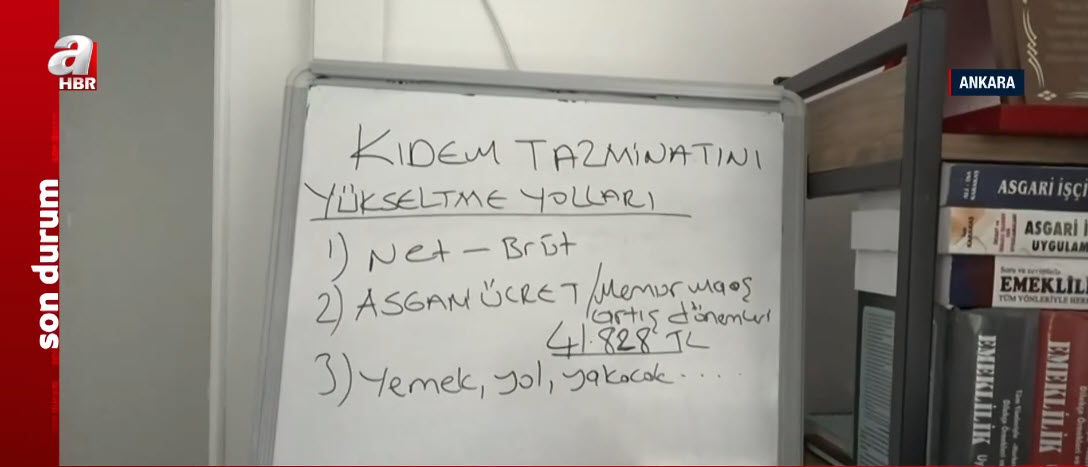 a
HBR
son durum
ANKARA
KIDEM TAZMİNATINI
YÜKSELTME YOLLARI
1) Net – Brüt
2) ASGARİ ÜCRET / Memur maaş
artış dönemleri
41.828 TL
3) Yemek, yol, yakacak .....
ASGARİ İŞÇİ
ASGARİ İ
UYGULAM
EMEKLİLİ
TÜM YÖNLERİYLE HER
EMEKLİLİK
EMEKLİLİK